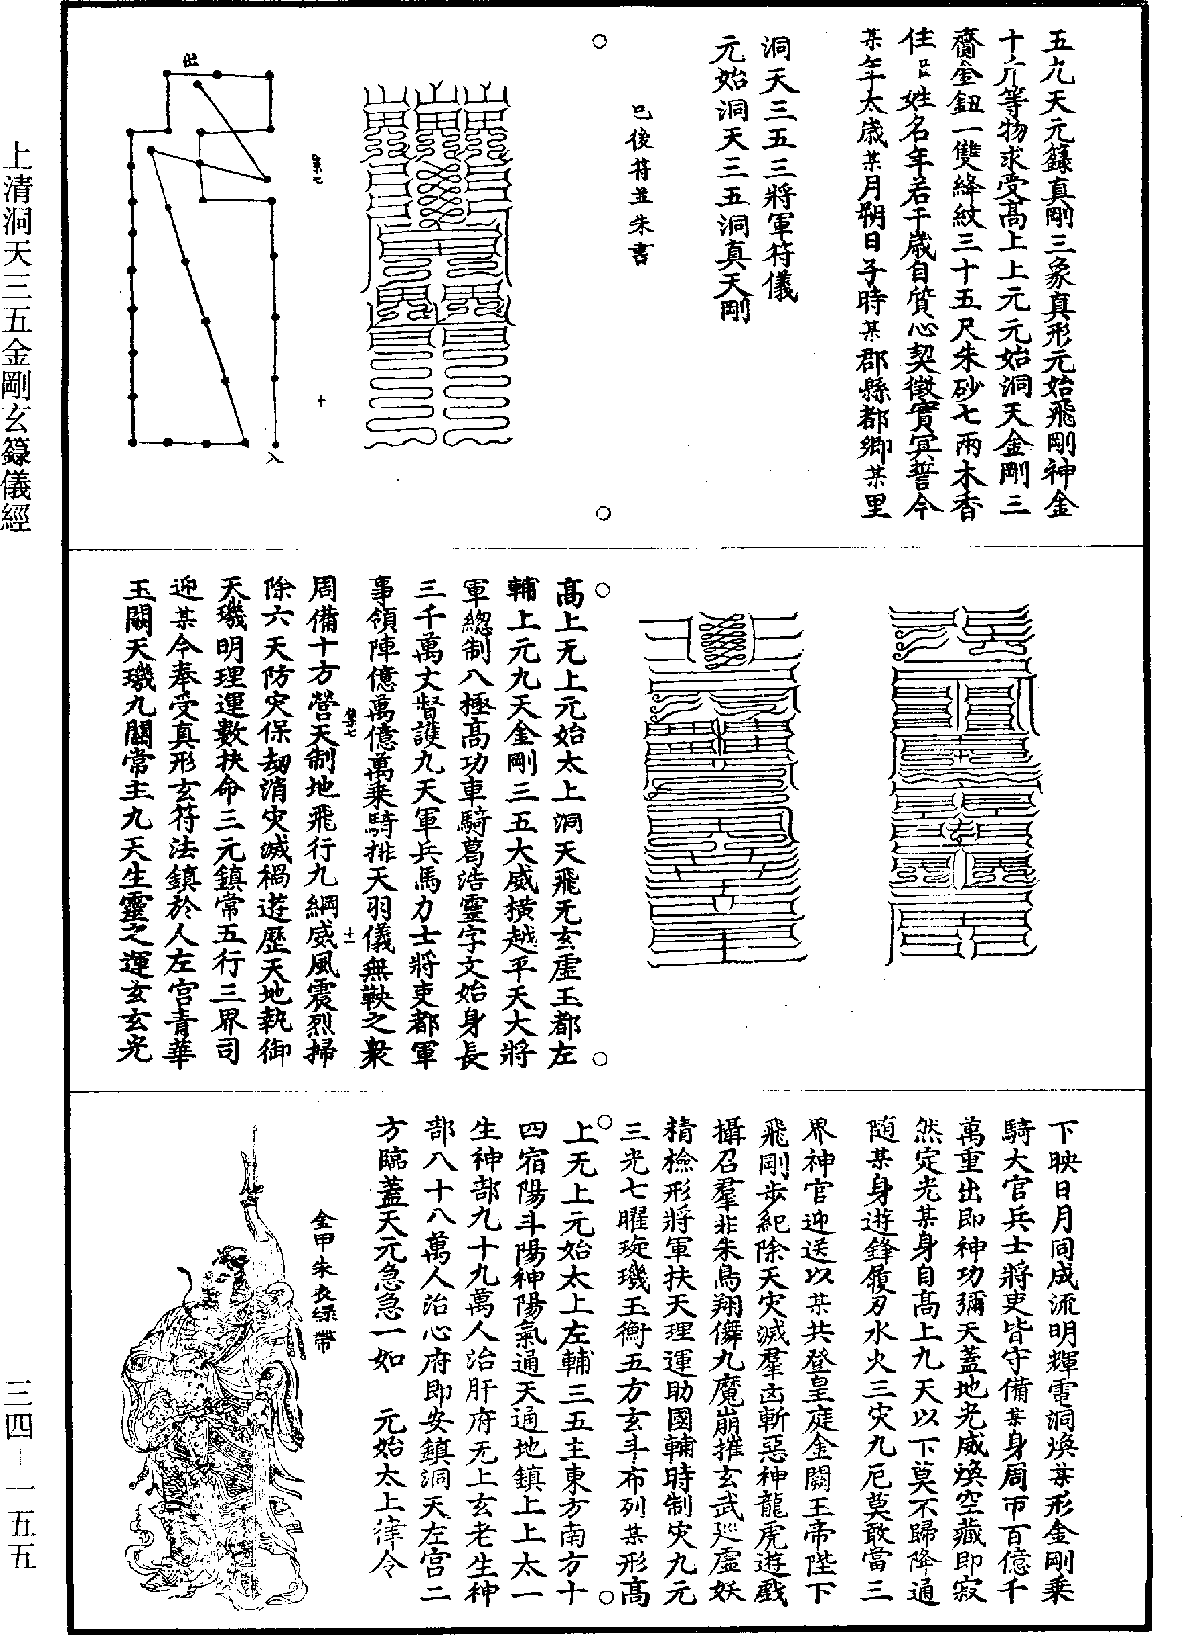 上清洞天三五金剛玄籙儀經
五九天元籙真剛三象真形元始飛剛神金
十斤等物求受高上上元元始洞天金剛三
齎金鈕一雙絳紋三十五尺朱砂七兩木香
住居姓名年若干歲自質心契徵實冥誓今
某年太歲某月朔日子時某郡縣都鄉某里
洞天三五三將軍符儀
元始洞天三五洞真天剛
已後符並朱書
集七
十
出
入
高上无上元始太上洞天飛无玄虛玉都左
輔上元九天金剛三五大威橫越平天大將
軍總制八極高功車騎葛浩靈字文始身長
三千萬丈督護九天軍兵馬力士將吏都軍
事領陣億萬億萬乘騎排天羽儀無鞅之衆
集七
十一
周備十方營天制地飛行九綱威風震烈掃
除六天防灾保劫消灾滅禍遊歷天地執御
天璣明理運數扶命三元鎮常五行三界司
迎某今奉受真形玄符法鎮於人左宮青華
玉闕天璣九闥常主九天生靈之運玄玄光
下映日月同成流明輝電洞煥某形金剛乘
騎大官兵士將吏皆守備某身周帀百億千
萬重出即神功彌天蓋地光威煥空藏即寂
然定光某身自高上九天以下莫不歸降通
隨某身遊鋒履刃水火三灾九厄莫敢當三
界神官迎送以某共登皇庭金闕玉帝陛下
飛剛步紀除天灾滅羣凶斬惡神龍虎遊戲
攝召羣非朱鳥翔儛九魔崩摧玄武巡虛妖
精檢形將軍扶天理運助國輔時制灾九元
三光七曜琁璣玉衡五方玄斗布列某形高
上无上元始太上左輔三五主東方南方十
四宿陽斗陽神陽氣通天通地鎮上上太一
生神部九十九萬人治肝府无上玄老生神
部八十八萬人治心府即安鎮洞天左宮二
方臨蓋天元急急一如　元始太上律令
金甲朱衣綠帶
三四－一五五